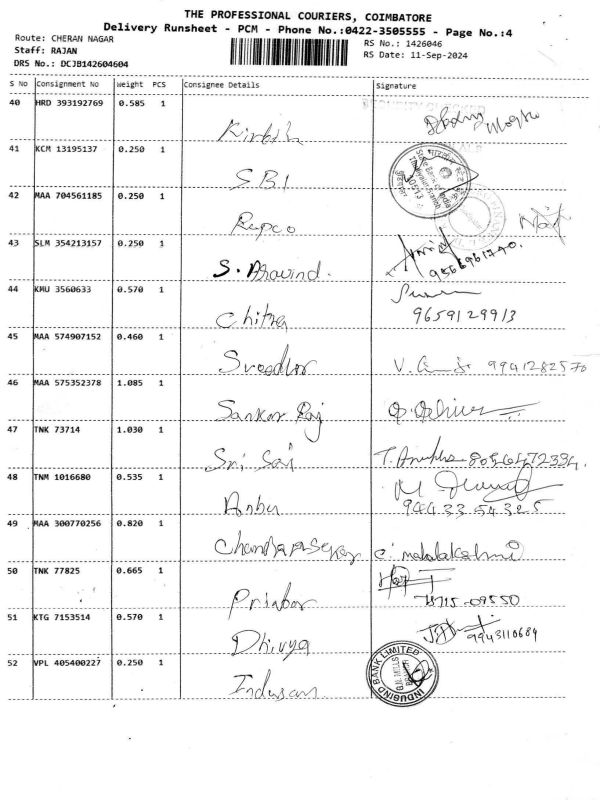 THE PROFESSIONAL COURIERS, COIMBATORE
Delivery Runsheet - PCM - Phone No.:0422-3505555 - Page No.:4
Route: CHERAN NAGAR
RS No.: 1426046
Staff: RAJAN
RS Date: 11-Sep-2024
DRS No.: DCJB142604604
S No Consignment No Weight PCS Consignee Details Signature
40 HRD 393192769 0.585 1
41 KCM 13195137 0.250 1
SBI
State Bank of India
42 MAA 704561185 0.250 1
Repco
43 SLM 354213157 0.250 1
S. Aravind.
9566961790.
44 KMU 3560633 0.570 1
Chitra
9659129913
45 MAA 574907152 0.460 1
Sreedhar
9941282570
46 MAA 575352378 1.085 1
Sankar Raj
47 TNK 73714 1.030 1
Sri Sai
48 TNM 1016680 0.535 1
Anbu
94433 54325
49 MAA 300770256 0.820 1
Chandarasekar C. mahalakshmi
50 TNK 77825 0.665 1
Priabar
51 KTG 7153514 0.570 1
Dhivya
9943110684
52 VPL 405400227 0.250 1
INDUSIND BANK LIMITED